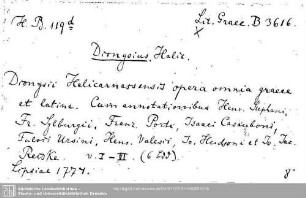 H. B. 119d
Lit. Graec. B 3616.
Dionysius, Halic.
Dionysii Halicarnassensis opera omnia graece
et latine. Cum annotationibus Henr. Stephani,
Fr. Sylburgii, Franz. Porti, Isaaci Casauboni,
Fulvii Ursini, Henr. Valesii, Io. Hudsoni et Io. Jac.
Reiske. v. I-VI. (6 Bde)
Lipsiae 1774. 8°